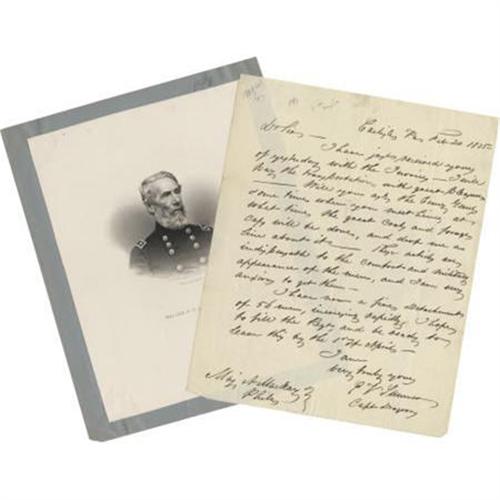 Carlisle Pa Feb. 20 1835
Dr Sir,
I have just received yours
of yesterday with the Invoice. I will
pay the transportation with great pleasure
Will you ask the
some time when you meet him, at
what time the great Coats and forage
caps will be done, and drop me a
line about it. These articles are
indispensable to the comfort and military
appearance of the men, and I am very
anxious to get them.
I have now a fine detachment
of 56 men, increasing rapidly I hope
to fill the and be ready to
leave this by the 1st of April
I am
very truly yours
E V Sumner
Capt Dragoons
Maj
Phila
MAJ. GEN. E. V.